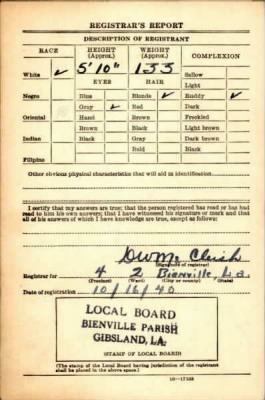 REGISTRAR'S REPORT
DESCRIPTION OF REGISTRANT
RACE HEIGHT (Approx.) WEIGHT (Approx.) COMPLEXION
White ✓ 5' 10" 133 Sallow
EYES HAIR Light
Negro Blue Blonde ✓ Ruddy ✓
Gray ✓ Red Dark
Oriental Hazel Brown Freckled
Brown Black Light brown
Indian Black Gray Dark brown
Bald Black
Filipino
Other obvious physical characteristics that will aid in identification
I certify that my answers are true; that the person registered has read or has had
read to him his own answers; that I have witnessed his signature or mark and that
all of his answers of which I have knowledge are true, except as follows:
(Signature of registrar)
Registrar for 4 2 Bienville, La.
(Precinct) (Ward) (City or county) (State)
Date of registration 10/16/40
LOCAL BOARD
BIENVILLE PARISH
GIBSLAND, LA.
STAMP OF LOCAL BOARD
(The stamp of the Local Board having jurisdiction of the registrant
shall be placed in the above space.)